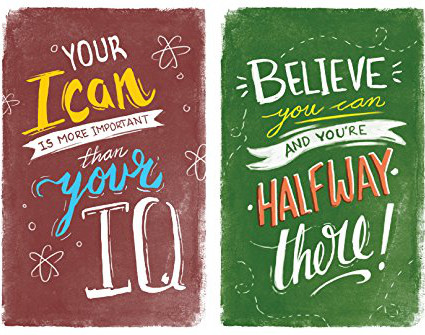 YOUR
I can
IS MORE IMPORTANT
than
your
IQ
BELIEVE
you can
AND YOU'RE
HALFWAY
there!